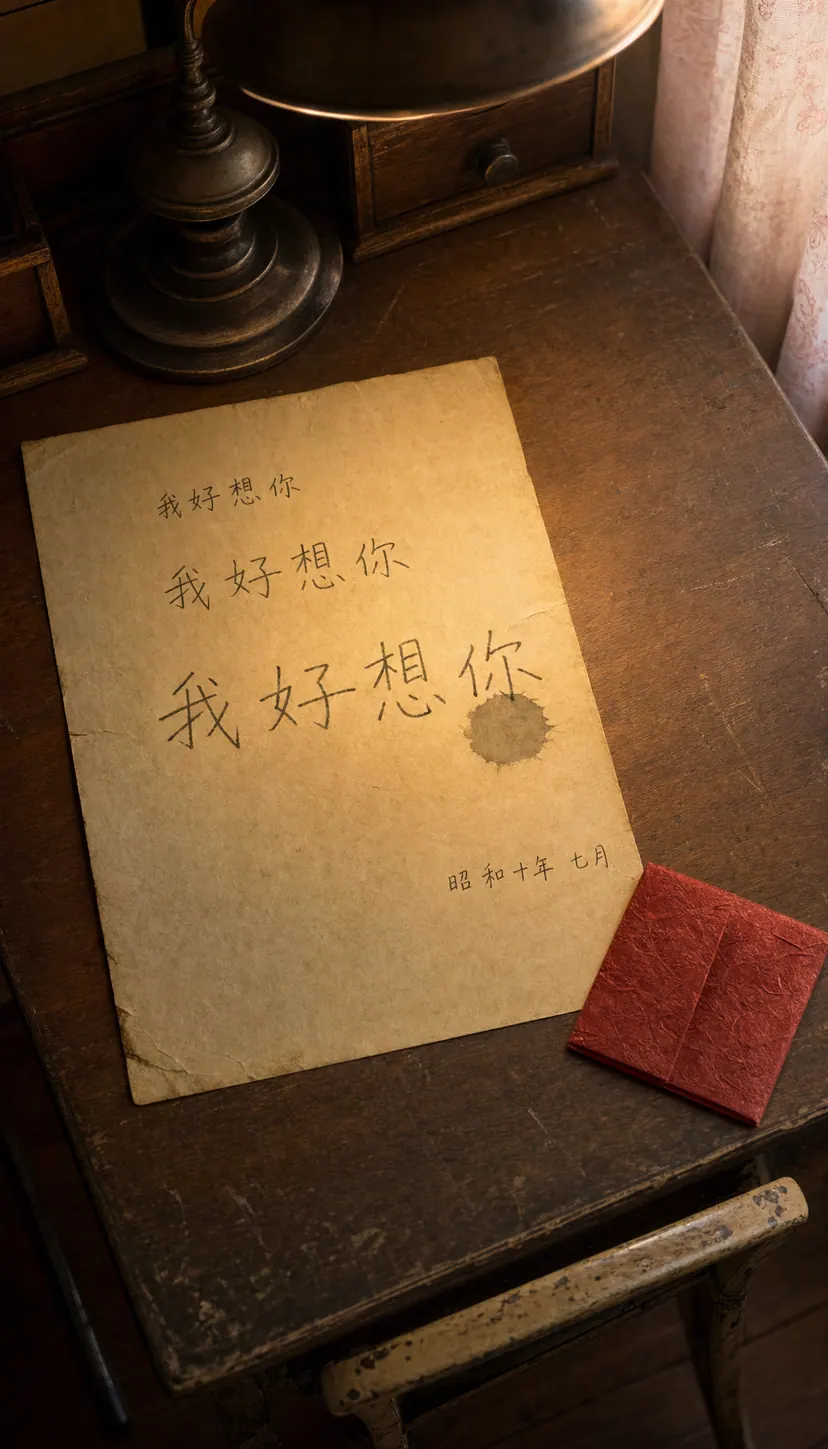 我好想你
我好想你
我好想你
昭和十年 七月